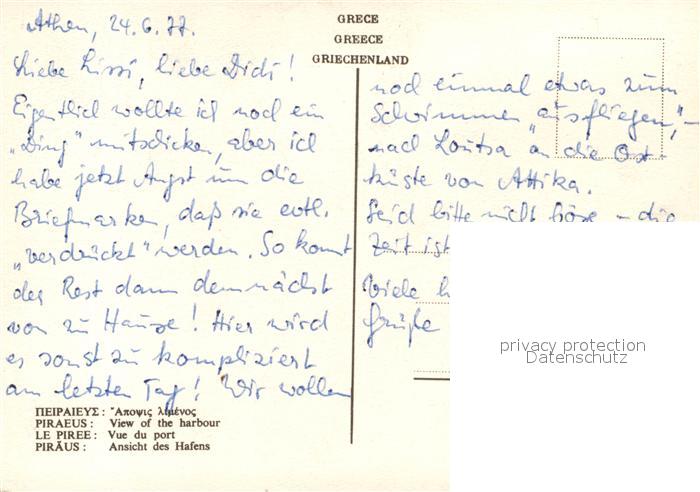 GRECE
GREECE
GRIECHENLAND
Athen, 24.6.77.
Liebe Lissi, liebe Didi!
Eigentlich wollte ich noch ein
„Ding" mitschicken, aber ich
habe jetzt Angst um die
Briefmarken, daß sie evtl.
„verdrückt" werden. So kommt
der Rest dann demnächst
von zu Hause! Hier wird
es sonst zu kompliziert
am letzten Tag! Wir wollen
noch einmal etwas zum
Schwimmen „ausfliegen", –
nach Loutsa an die Ost-
küste von Attika.
Seid bitte nicht böse – die
Zeit ist
Viele
Grüße
privacy protection
Datenschutz
ΠΕΙΡΑΙΕΥΣ: Ἄποψις λιμένος
PIRAEUS: View of the harbour
LE PIREE: Vue du port
PIRÄUS: Ansicht des Hafens